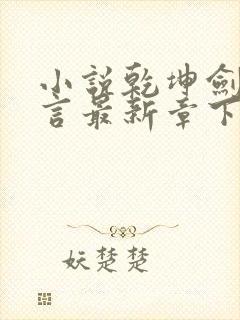 小說乾坤劍
言最新章下
妖楚楚